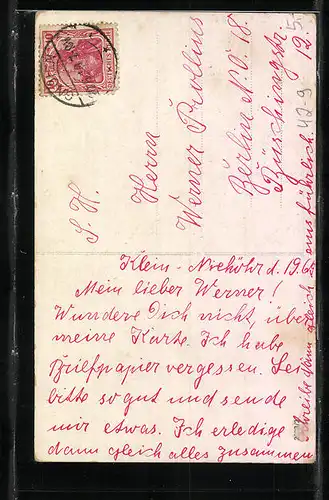 S. H.
Herrn
Werner Prollius
Berlin N. O. 18.
Büschingstr.
12
Klein - d. 19.6.
Mein lieber Werner!
Wundere Dich nicht, über
meine Karte. Ich habe
Briefpapier vergessen. Sei
bitte so gut und sende
mir etwas. Ich erledige
dann gleich alles zusammen
Schreibe dann gleich ausführlich.